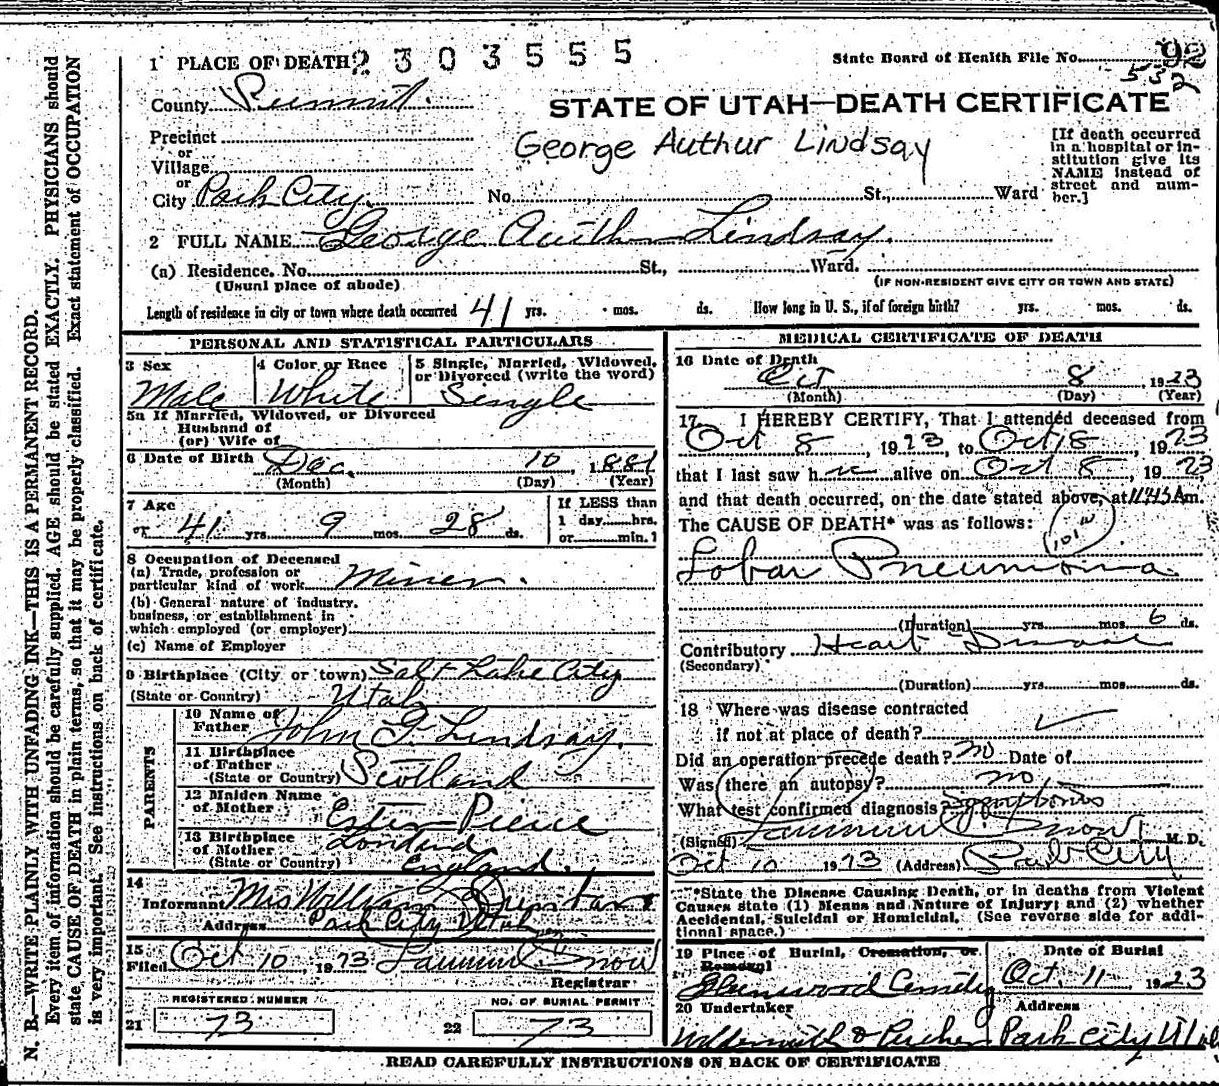 1 PLACE OF DEATH 2303555
State Board of Health File No. 92
532
County Summit.
STATE OF UTAH—DEATH CERTIFICATE
Precinct
or
Village
or
City Park City. No. St., Ward
George Authur Lindsay
[If death occurred
in a hospital or in-
stitution give its
NAME instead of
street and num-
ber.]
2 FULL NAME George Lindsay.
(a) Residence. No. St., Ward.
(Usual place of abode)
(IF NON-RESIDENT GIVE CITY OR TOWN AND STATE)
Length of residence in city or town where death occurred 41 yrs. mos. ds. How long in U. S., if of foreign birth? yrs. mos. ds.
PERSONAL AND STATISTICAL PARTICULARS
3 Sex
Male
4 Color or Race
White
5 Single, Married, Widowed,
or Divorced (write the word)
Single
5a If Married, Widowed, or Divorced
Husband of
(or) Wife of
6 Date of Birth Dec. 10, 1881
(Month) (Day) (Year)
7 Age
or 41 yrs. 9 mos. 28 ds.
If LESS than
1 day hrs.
or min.
8 Occupation of Deceased
(a) Trade, profession or
particular kind of work Miner.
(b) General nature of industry,
business, or establishment in
which employed (or employer)
(c) Name of Employer
9 Birthplace (City or town) Salt Lake City
(State or Country) Utah
PARENTS
10 Name of
Father John Lindsay.
11 Birthplace
of Father
(State or Country) Scotland
12 Maiden Name
of Mother Pierce
13 Birthplace
of Mother
(State or Country)
England.
14
Informant Mrs William
Address Park City Utah
15
Filed Oct 10, 1923 Snow
Registrar
REGISTERED NUMBER
21 73
NO. OF BURIAL PERMIT
22 73
MEDICAL CERTIFICATE OF DEATH
16 Date of Death
Oct 8, 1923
(Month) (Day) (Year)
17 I HEREBY CERTIFY, That I attended deceased from
Oct 8, 1923, to Oct 8, 1923
that I last saw h alive on Oct 8, 1923,
and that death occurred, on the date stated above, at 11:45 A m.
The CAUSE OF DEATH* was as follows:
Lobar Pneumonia
(Duration) yrs. mos. 6 ds.
Contributory Heart Disease
(Secondary)
(Duration) yrs. mos. ds.
18 Where was disease contracted
if not at place of death?
Did an operation precede death? no Date of
Was there an autopsy? no
What test confirmed diagnosis? Symptoms
(Signed) Snow, M. D.
Oct 10 1923 (Address) Park City
*State the Disease Causing Death, or in deaths from Violent
Causes state (1) Means and Nature of Injury; and (2) whether
Accidental, Suicidal or Homicidal. (See reverse side for addi-
tional space.)
19 Place of Burial, Cremation, or
Removal
Glenwood Cemetery
Date of Burial
Oct. 11, 1923
20 Undertaker
Address
Park City Utah
READ CAREFULLY INSTRUCTIONS ON BACK OF CERTIFICATE
N. B.—WRITE PLAINLY WITH UNFADING INK—THIS IS A PERMANENT RECORD.
Every item of information should be carefully supplied. AGE should be stated EXACTLY. PHYSICIANS should
state CAUSE OF DEATH in plain terms, so that it may be properly classified. Exact statement of OCCUPATION
is very important. See instructions on back of certificate.